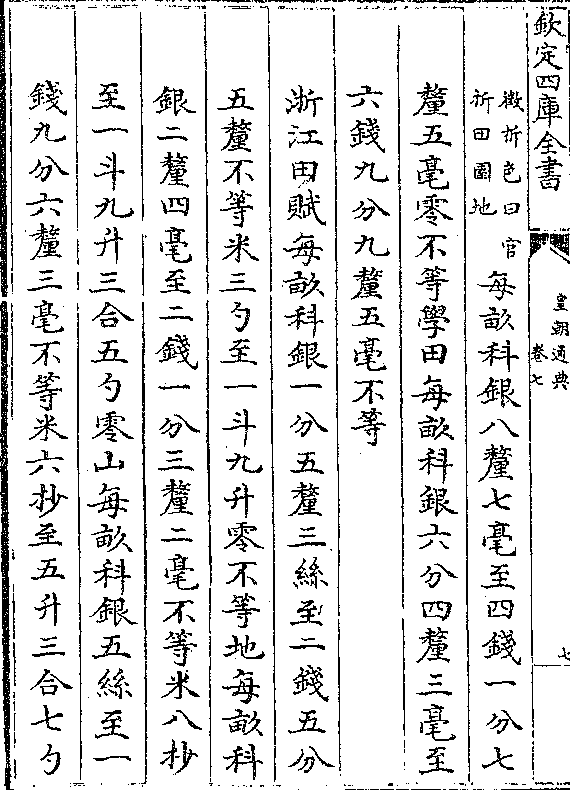 欽定四庫全書
皇朝通典
卷七
七
徵折色曰官
折田園地
每畝科銀八釐七毫至四錢一分七
釐五毫零不等學田每畝科銀六分四釐三毫至
六錢九分九釐五毫不等
浙江田賦每畝科銀一分五釐三絲至二錢五分
五釐不等米三勺至一斗九升零不等地每畝科
銀二釐四毫至二錢一分三釐二毫不等米八抄
至一斗九升三合五勺零山每畝科銀五絲至一
錢九分六釐三毫不等米六抄至五升三合七勺